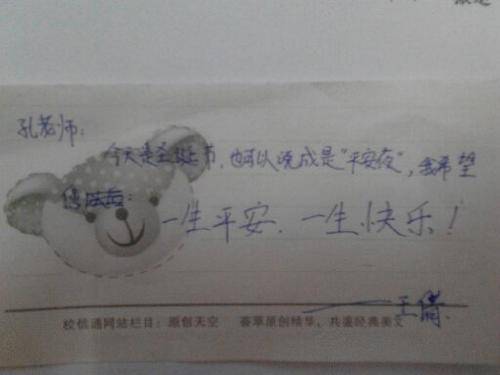 孔老师：
今天是圣诞节，也可以说成是“平安夜”，我希望
一生平安、一生快乐！
——王倩
校信通网站栏目：原创天空 荟萃原创精华，共涵经典美文